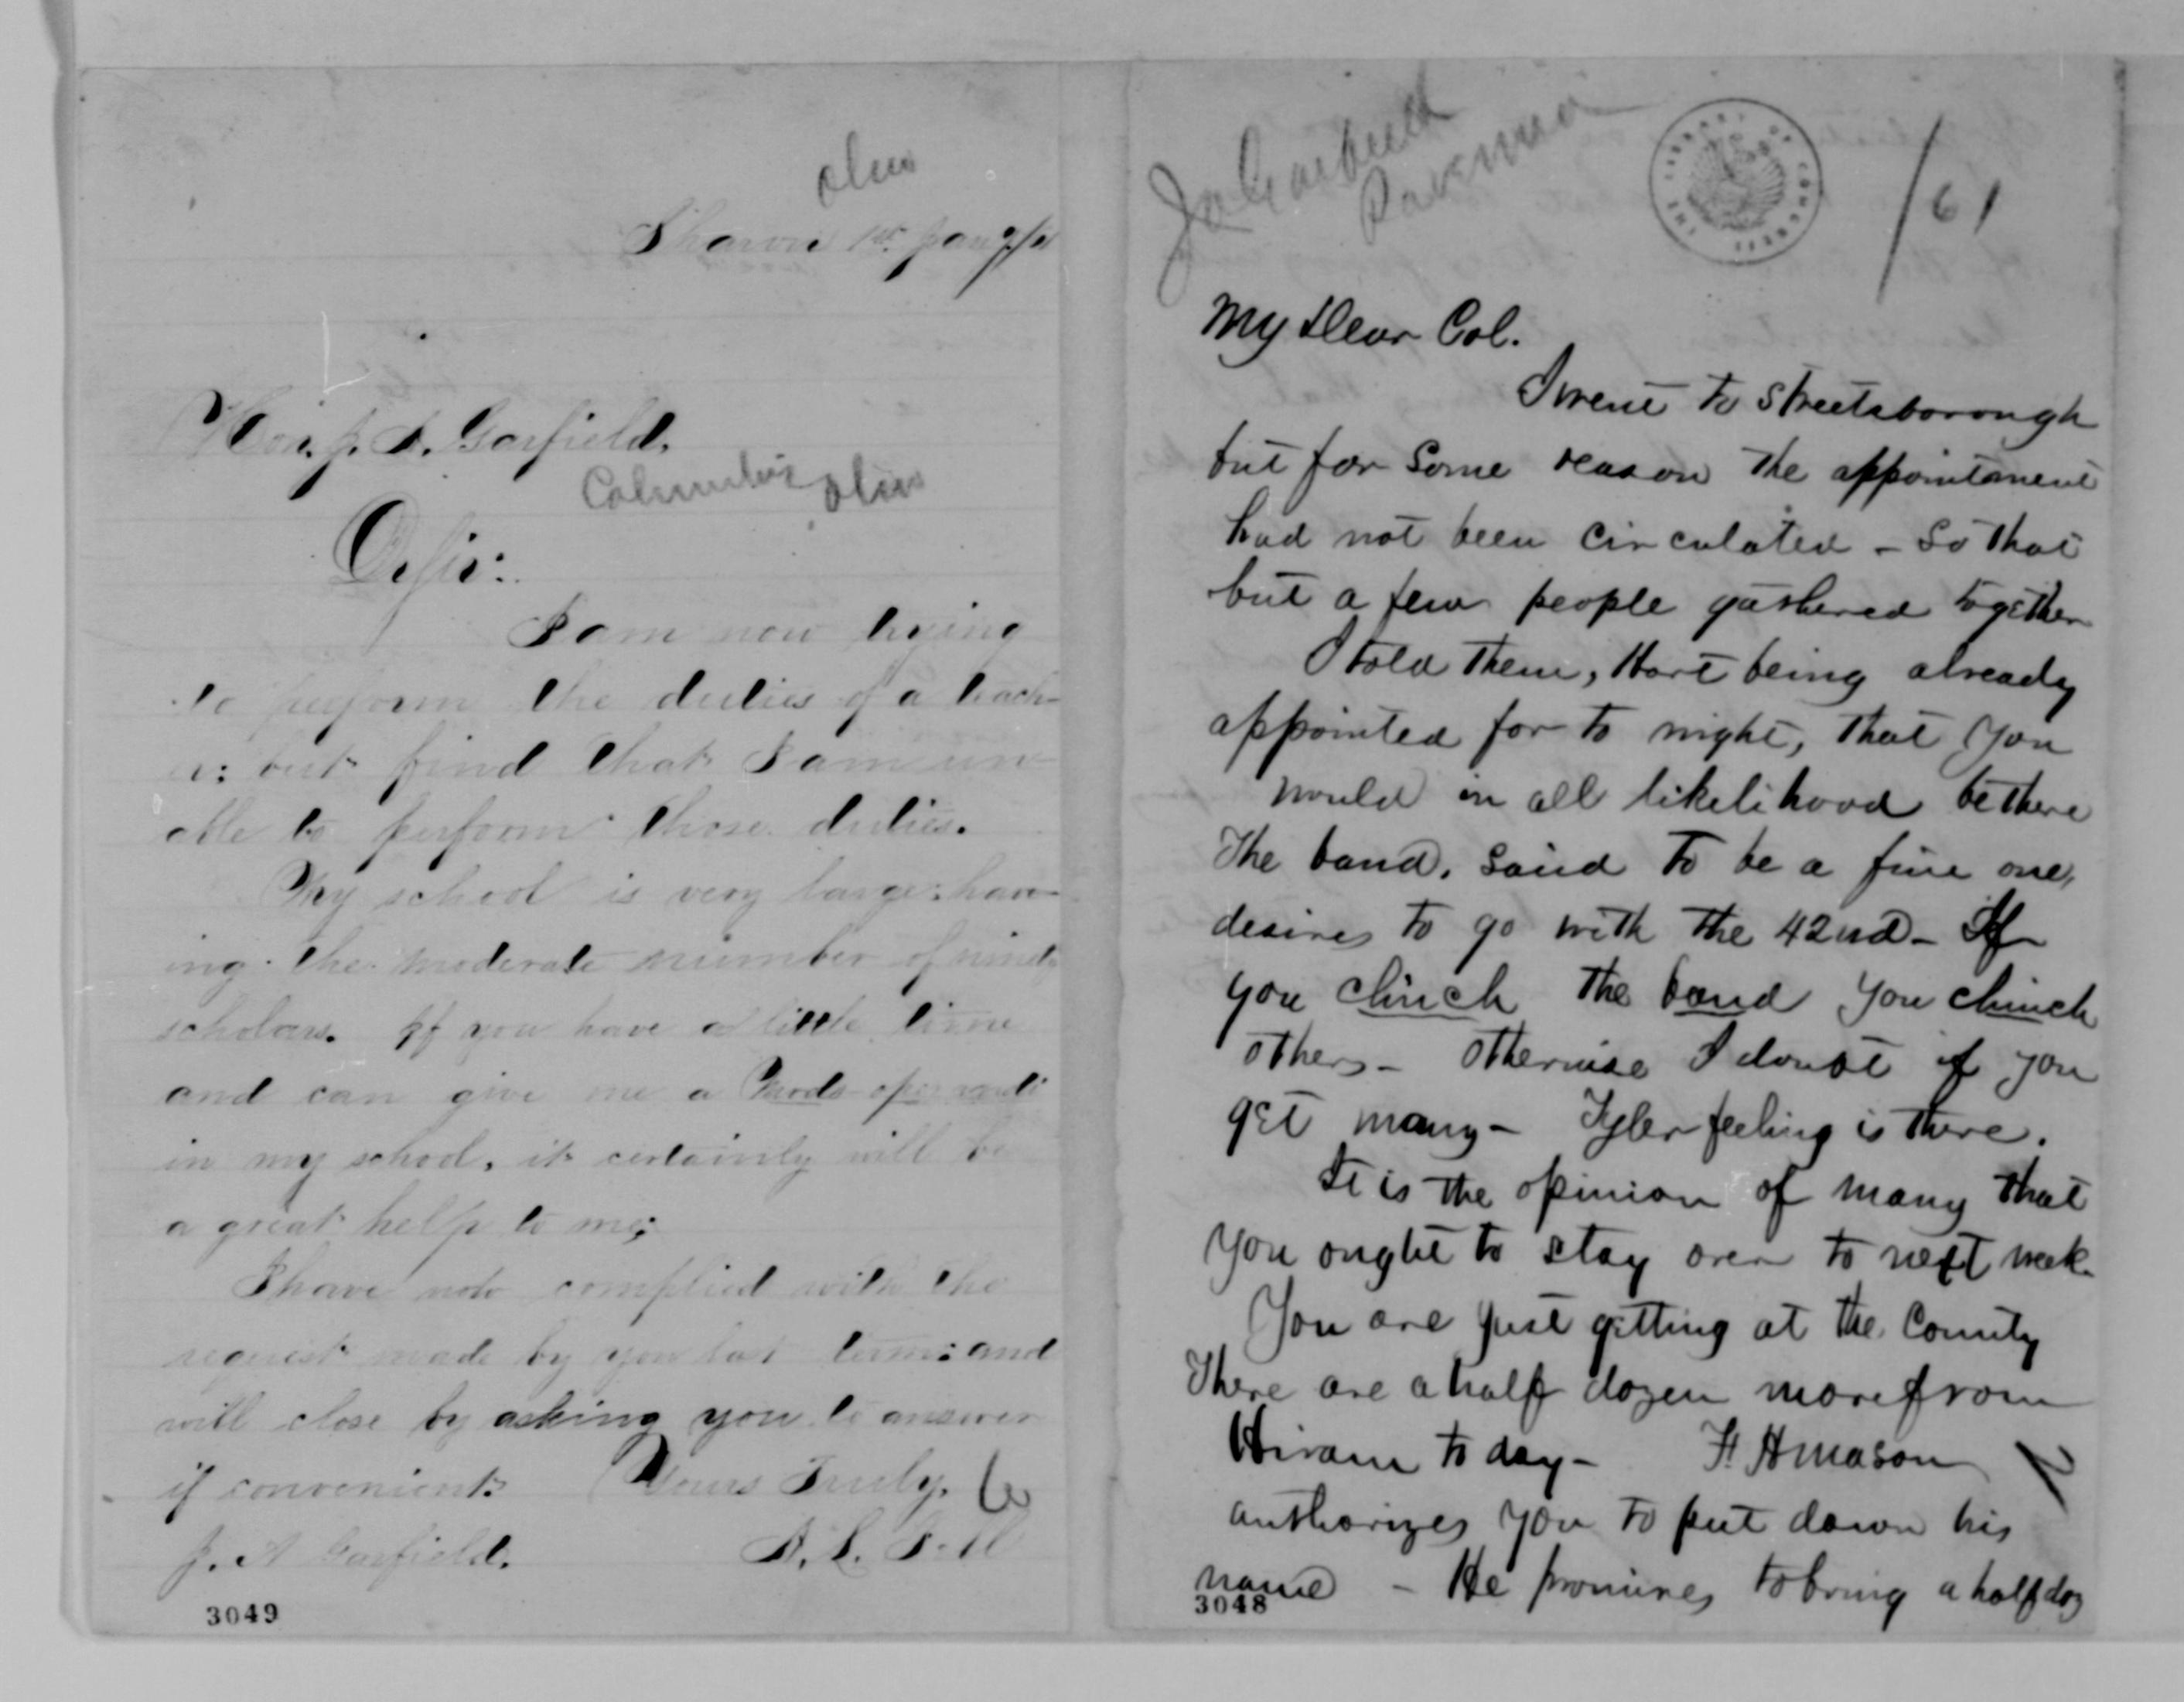 Ohio
Sharon 1st Jany
Hon. J. A. Garfield.
Columbus Ohio
Dr Sir:
I am now trying
to perform the duties of a teach-
er: but find that I am un-
able to perform those duties.
My school is very large: hav-
ing the moderate number of ninety
scholars. If you have a little time
and can give me a Modo operandi
in my school, it certainly will be
a great help to me;
I have not complied with the
request made by you last term: and
will close by asking you to answer
if convenient. Yours Truly,
J. A Garfield.
3049
J A Garfield
Ravenna
THE LIBRARY OF CONGRESS
/61
My Dear Col.
I went to Streetsborough
but for some reason the appointment
had not been circulated - So that
but a few people gathered together
I told them, Hart being already
appointed for to night, that you
would in all likelihood be there
The band, said to be a fine one,
desires to go with the 42nd - If
you clinch the band you clinch
others - otherwise I doubt if you
get many - Tyler feeling is there.
It is the opinion of many that
you ought to stay over to next week.
You are just getting at the County
There are a half dozen more from
Hiram to day - F. H Mason
authorizes you to put down his
name - He promises to bring a half doz
3048